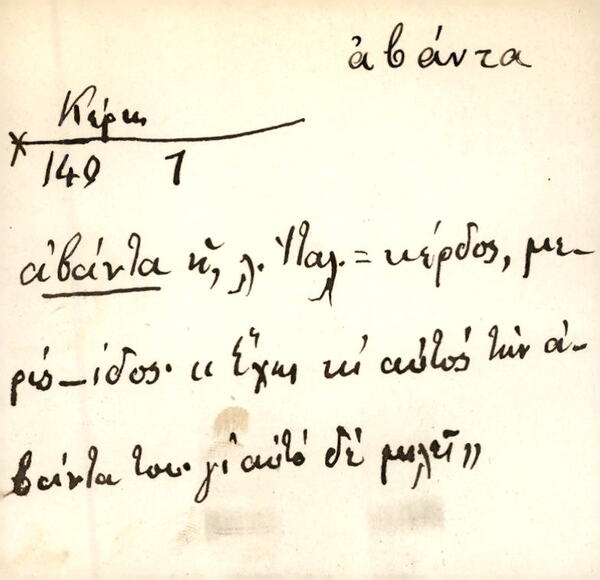 ἀβάντα
Κέρκ
149 1
ἀβάντα ἡ, λ. Ἰταλ. = κέρδος, με-
ρίς-ίδος. «Ἔχει κι αὐτὸς τὴν ἀ-
βάντα του γι αὐτὸ δὲ μιλεῖ»